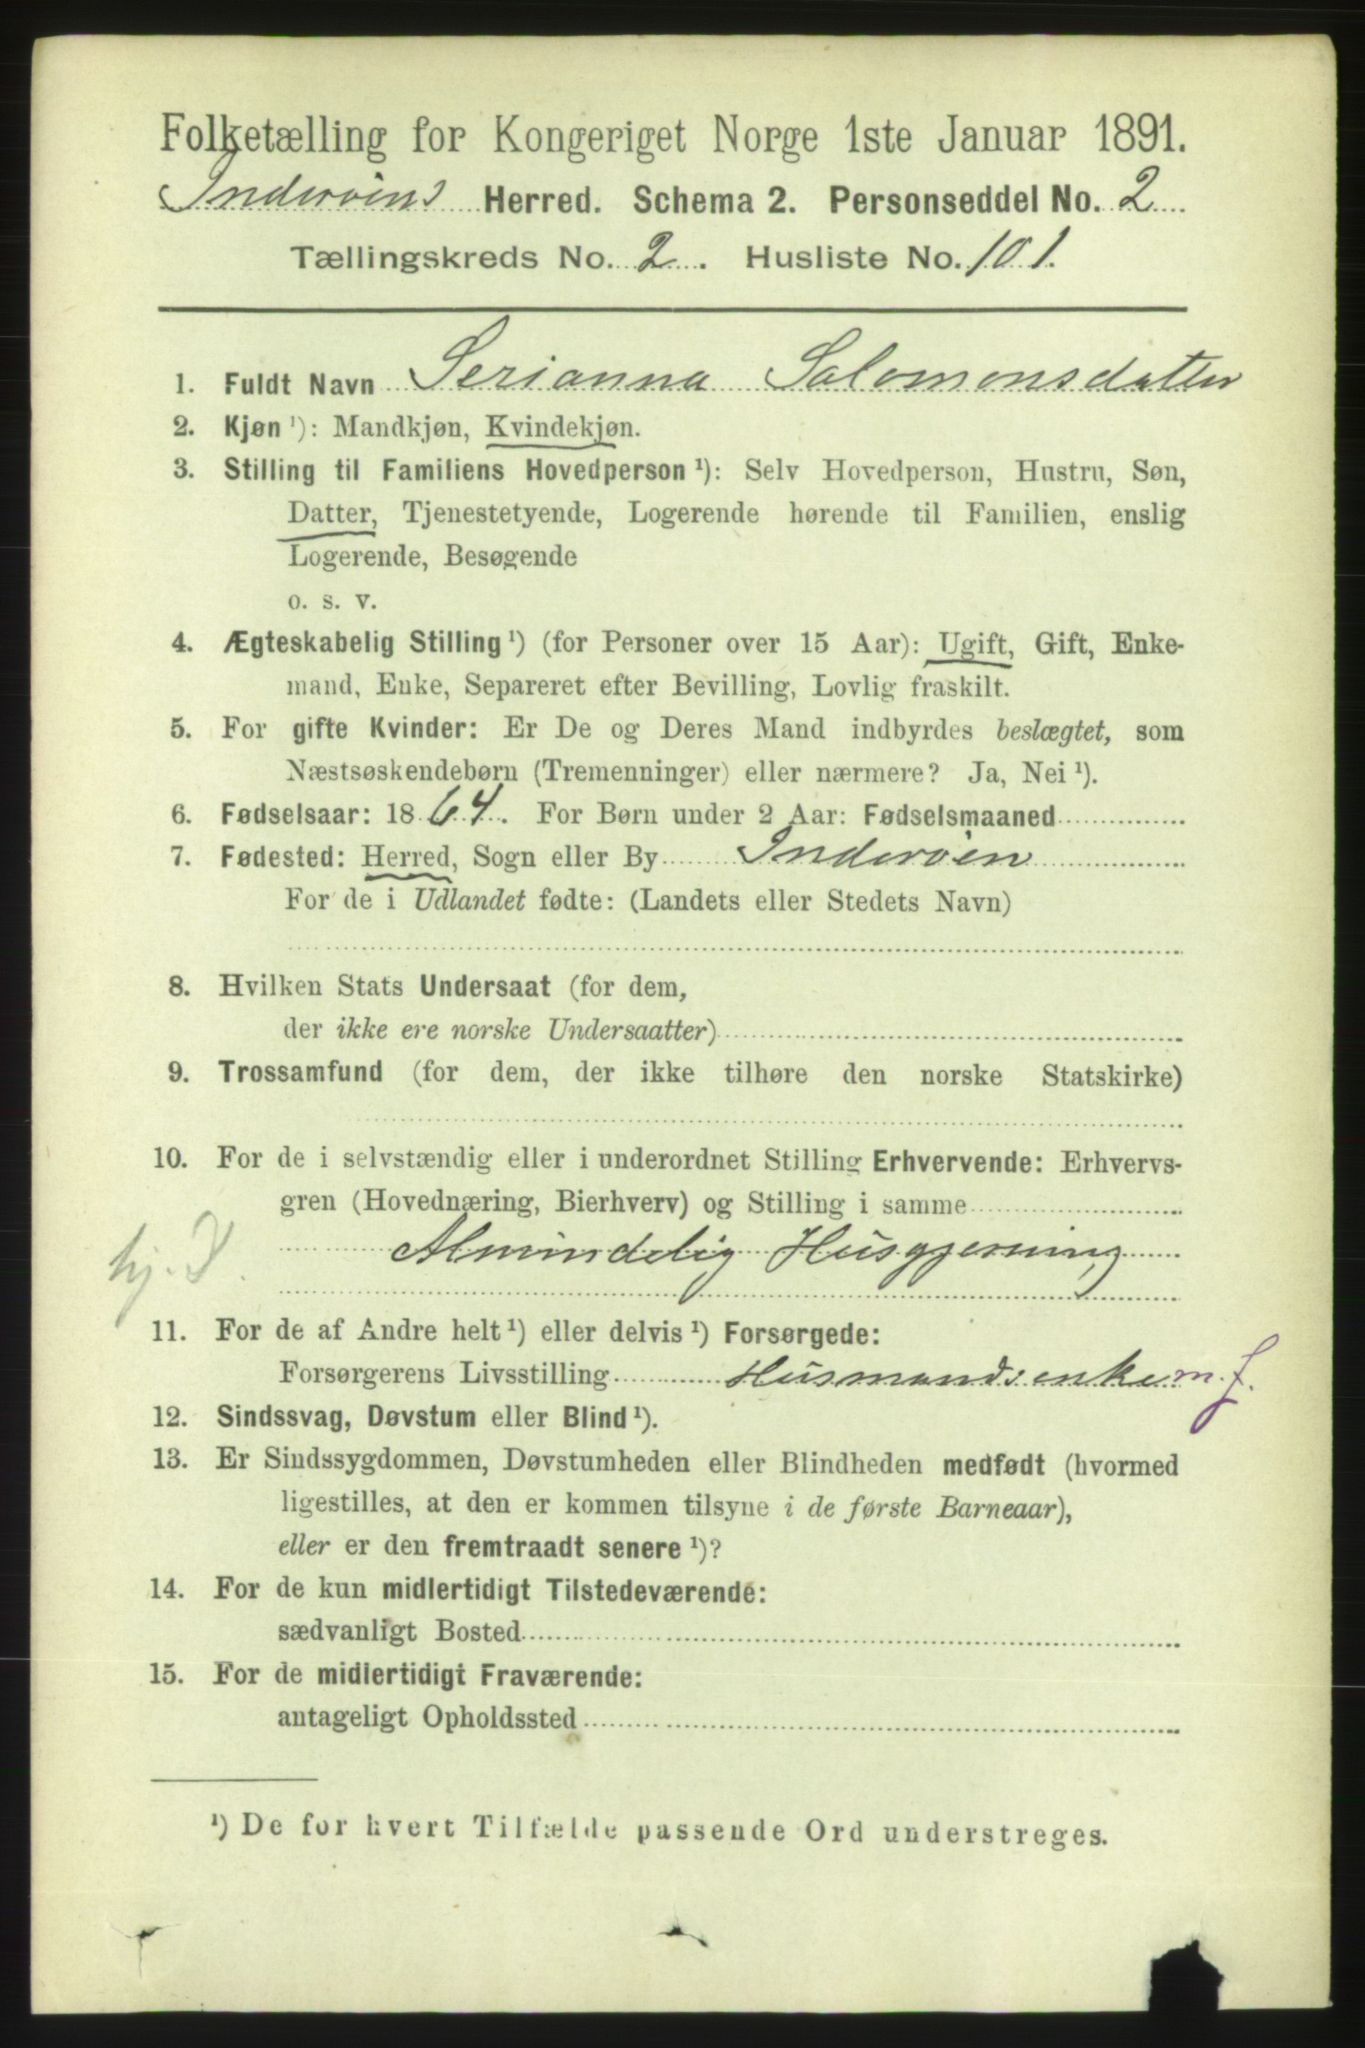 Folketælling for Kongeriget Norge 1ste Januar 1891.
Inderøens Herred. Schema 2. Personseddel No. 2
Tællingskreds No. 2. Husliste No. 101.
1. Fuldt Navn Serianna Salomonsdatter
2. Kjøn ¹): Mandkjøn, Kvindekjøn.
3. Stilling til Familiens Hovedperson ¹): Selv Hovedperson, Hustru, Søn,
Datter, Tjenestetyende, Logerende hørende til Familien, enslig
Logerende, Besøgende
o. s. v.
4. Ægteskabelig Stilling ¹) (for Personer over 15 Aar): Ugift, Gift, Enke-
mand, Enke, Separeret efter Bevilling, Lovlig fraskilt.
5. For gifte Kvinder: Er De og Deres Mand indbyrdes beslægtet, som
Næstsøskendebørn (Tremenninger) eller nærmere? Ja, Nei ¹).
6. Fødselsaar: 1864. For Børn under 2 Aar: Fødselsmaaned
7. Fødested: Herred, Sogn eller By Inderøen
For de i Udlandet fødte: (Landets eller Stedets Navn)
8. Hvilken Stats Undersaat (for dem,
der ikke ere norske Undersaatter)
9. Trossamfund (for dem, der ikke tilhøre den norske Statskirke)
10. For de i selvstændig eller i underordnet Stilling Erhvervende: Erhvervs-
gren (Hovednæring, Bierhverv) og Stilling i samme
hj. D. Almindelig Husgjerning
11. For de af Andre helt ¹) eller delvis ¹) Forsørgede:
Forsørgerens Livsstilling Husmandsenke m. j.
12. Sindssvag, Døvstum eller Blind ¹).
13. Er Sindssygdommen, Døvstumheden eller Blindheden medfødt (hvormed
ligestilles, at den er kommen tilsyne i de første Barneaar),
eller er den fremtraadt senere ¹)?
14. For de kun midlertidigt Tilstedeværende:
sædvanligt Bosted
15. For de midlertidigt Fraværende:
antageligt Opholdssted
¹) De for hvert Tilfælde passende Ord understreges.